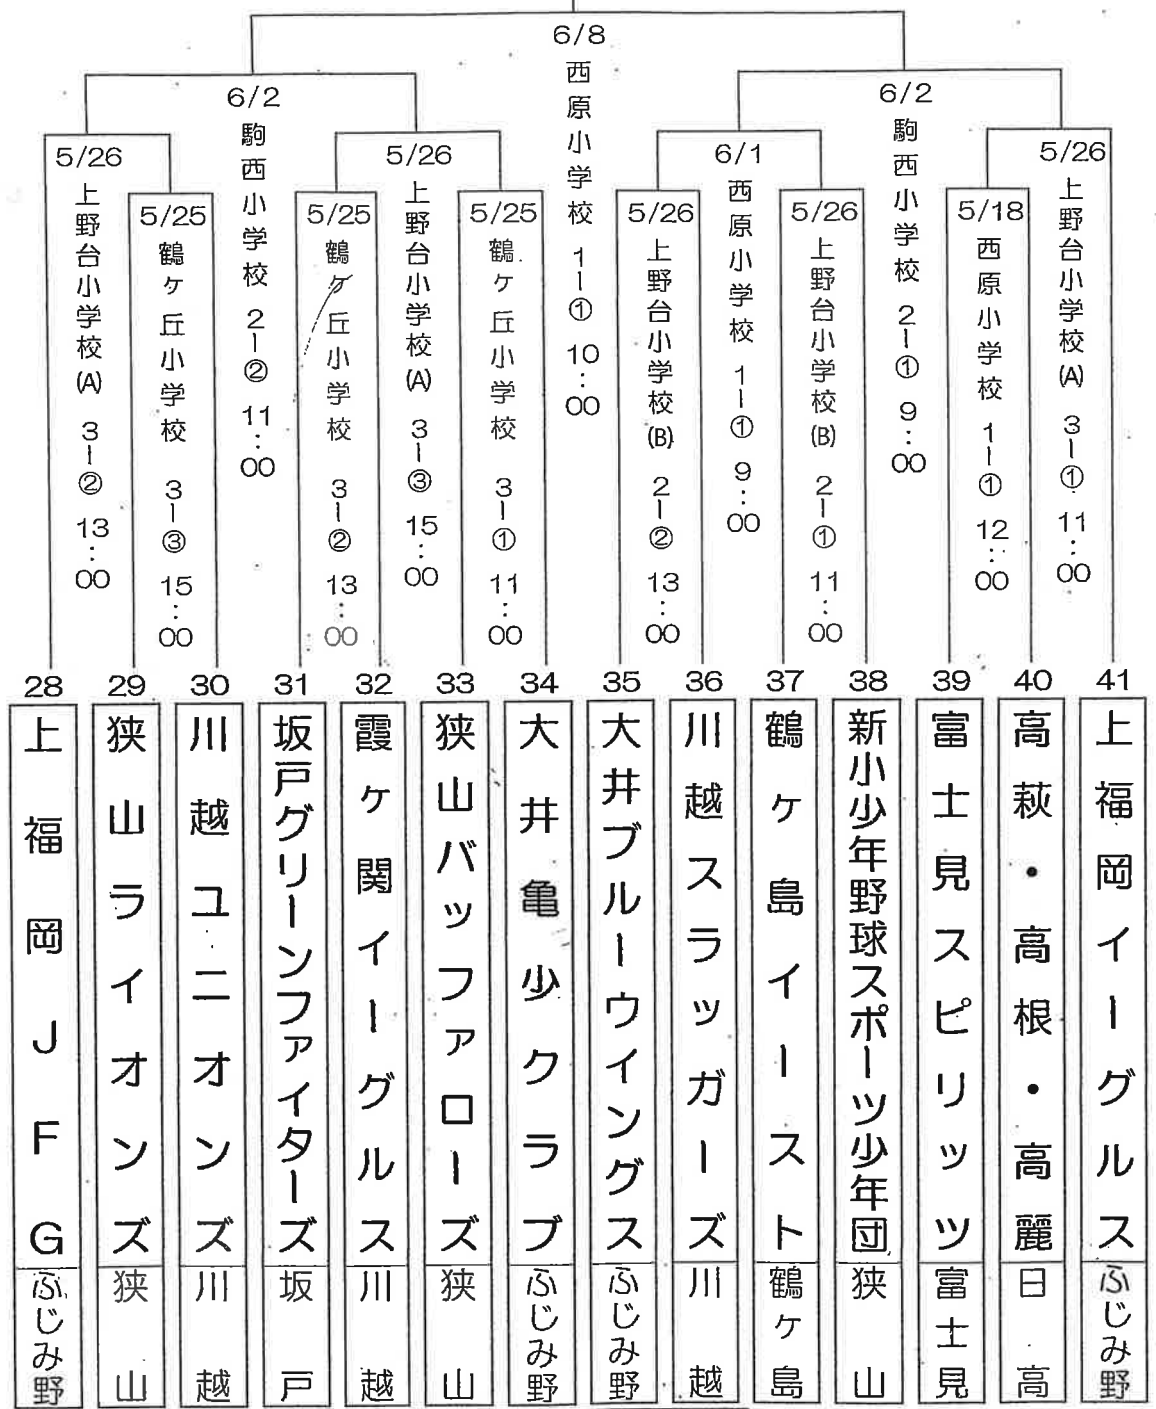 6/8
西原小学校 1-① 10:00
6/2
駒西小学校 2-② 11:00
6/2
駒西小学校 2-① 9:00
5/26
上野台小学校(A) 3-② 13:00
5/26
上野台小学校(A) 3-③ 15:00
6/1
西原小学校 1-① 9:00
5/26
上野台小学校(A) 3-① 11:00
5/25
鶴ヶ丘小学校 3-③ 15:00
5/25
鶴ヶ丘小学校 3-② 13:00
5/25
鶴ヶ丘小学校 3-① 11:00
5/26
上野台小学校(B) 2-② 13:00
5/26
上野台小学校(B) 2-① 11:00
5/18
西原小学校 1-① 12:00
28
上福岡JFG
ふじみ野
29
狭山ライオンズ
狭山
30
川越ユニオンズ
川越
31
坂戸グリーンファイターズ
坂戸
32
霞ヶ関イーグルス
川越
33
狭山バッファローズ
狭山
34
大井亀少クラブ
ふじみ野
35
大井ブルーウイングス
ふじみ野
36
川越スラッガーズ
川越
37
鶴ヶ島イースト
鶴ヶ島
38
新小少年野球スポーツ少年団
狭山
39
富士見スピリッツ
富士見
40
高萩・高根・高麗
日高
41
上福岡イーグルス
ふじみ野